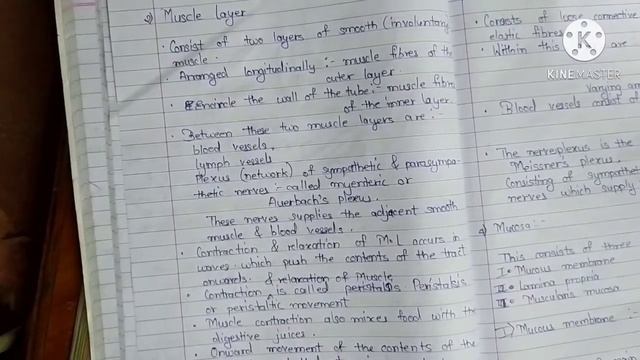 2) Muscle layer
• Consist of two layers of smooth (involuntary
muscle.
• Arranged longitudinally :- muscle fibres of the
outer layer.
• Encircle the wall of the tube:- muscle fibre
of the inner layer
• Between these two muscle layers are :-
blood vessels,
lymph vessels
Plexus (network) of sympathetic & parasympa-
thetic nerves :- called myenteric or
Auerbach's plexus.
These nerves supplies the adjacent smooth
muscle & blood vessels.
• Contraction & relaxation of M.L occurs in
waves which push the contents of the tract
onwards. & relaxation of Muscle
• Contraction is called peristalsis Peristalsis
or peristaltic movement
• Muscle contraction also mixes food with the
digestive juices.
• Onward movement of the contents of the
• Consists of loose connective
elastic fibres
• Within this are
varying am
• Blood vessels consist of
• The nerve plexus is the
Meissner's plexus.
consisting of sympathet
nerves which supply
4) Mucosa :-
This consists of three
I • Mucous membrane
II • Lamina propria
III • Muscularis mucosa
I) Mucous membrane :-
KINEMASTER